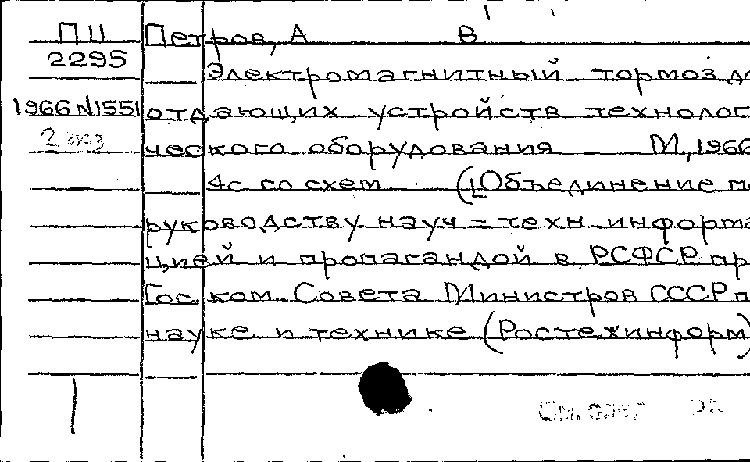 П II Петров, А В
2295
Электромагнитный тормоз
1966 N1551 отдающих устройств технолог
2 экз ческого оборудования М, 1966
4с со схем (Объединение п
руководству науч = техн информа
цией и пропагандой в РСФСР пр
Гос ком. Совета Министров СССР п
науке и технике (Ростехинформ)
См.